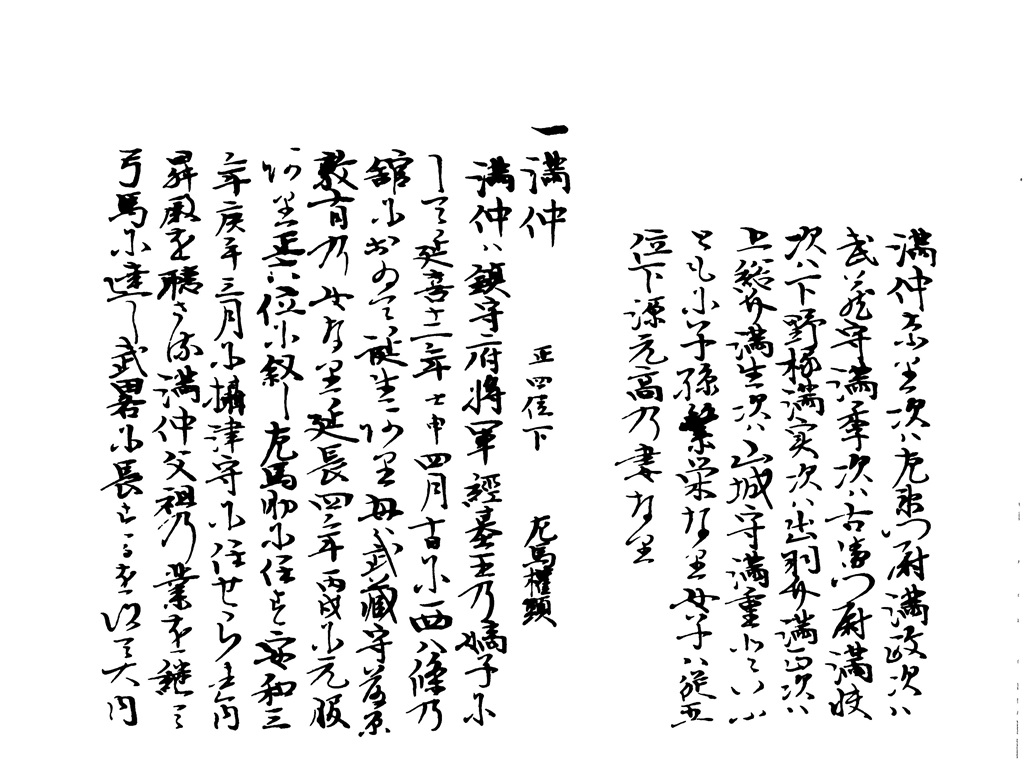 満仲なり次ハ左衛門尉満政次ハ
武蔵守満季次ハ右衛門尉満快
次ハ下野掾満実次ハ出羽介満正次ハ
上総介満生次ハ山城守満重
とも小子孫繁栄なり女子ハ従五
位下源元高乃妻なり
一満仲 正四位下 左馬権頭
満仲ハ鎮守府将軍経基王乃嫡子に
して延喜十二年壬申四月十日に西八條乃
舘に於ゐて誕生あり母ハ武藏守藤原
敦有乃女なり延長四年丙戌に元服
あり正六位に叙し左馬助に任す安和三
年庚午三月に攝津守に任せらる内
昇殿を聴さる満仲父祖乃業を継て
弓馬に達し武畧に長す